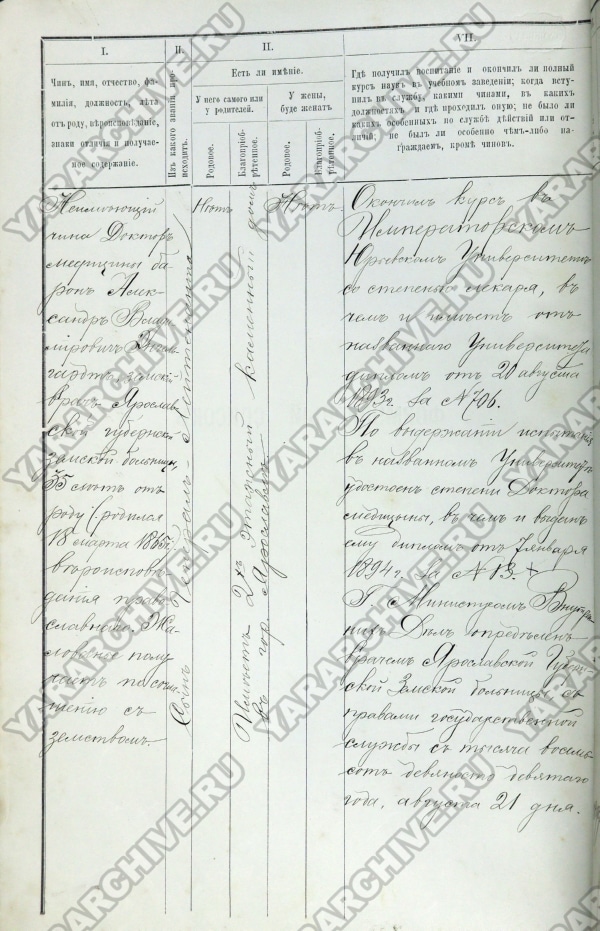 I.
II.
II.
VII.
Чинъ, имя, отчество, фа-
милія, должность, лѣта
отъ роду, вѣроисповѣданіе,
знаки отличія и получае-
мое содержаніе.
Изъ какого званія про-
исходитъ.
Есть ли имѣніе.
У него самого или
у родителей.
У жены,
буде женатъ
Родовое.
Благопріоб-
рѣтенное.
Родовое.
Благопріоб-
рѣтенное.
Гдѣ получилъ воспитаніе и окончилъ ли полный
курсъ наукъ въ учебномъ заведеніи; когда всту-
пилъ въ службу, какими чинами, въ какихъ
должностяхъ и гдѣ проходилъ оную; не было ли
какихъ особенныхъ по службѣ дѣйствій или от-
личій; не былъ ли особенно чѣмъ-либо на-
гражденъ, кромѣ чиновъ.
Неимѣющій
чина Докторъ
медицины ба-
ронъ Алек-
сандръ Влади-
міровичъ Энгель-
гардтъ, земскій
врачъ Ярослав-
ской губернской
земской больницы,
35 лѣтъ отъ
роду (родился
18 марта 1865г.)
вѣроисповѣ-
данія право-
славнаго. Жа-
лованье полу-
чаетъ по согла-
шенію съ
земствомъ.
Сынъ Генералъ-Лейтенанта
Нѣтъ
Имѣетъ 2хъ этажный каменный домъ
въ гор. Ярославлѣ
Нѣтъ.
Окончилъ курсъ въ
Императорскомъ
Юрьевскомъ Университетѣ
со степенью лекаря, въ
чемъ и имѣетъ отъ
названнаго Университета
дипломъ отъ 20 августа
1893г. за № 706.
По выдержаніи испытанія
въ названномъ Университетѣ
удостоенъ степени Доктора
медицины, въ чемъ и выданъ
ему дипломъ отъ 7 января
1894г. за № 13. +
Г. Министромъ Внутрен-
нихъ Дѣлъ опредѣленъ
врачемъ Ярославской Губерн-
ской Земской больницы съ
правами государственной
службы съ тысяча восемь-
сотъ девяносто девятаго
года, августа 21 дня.
YARARCHIVE.RU